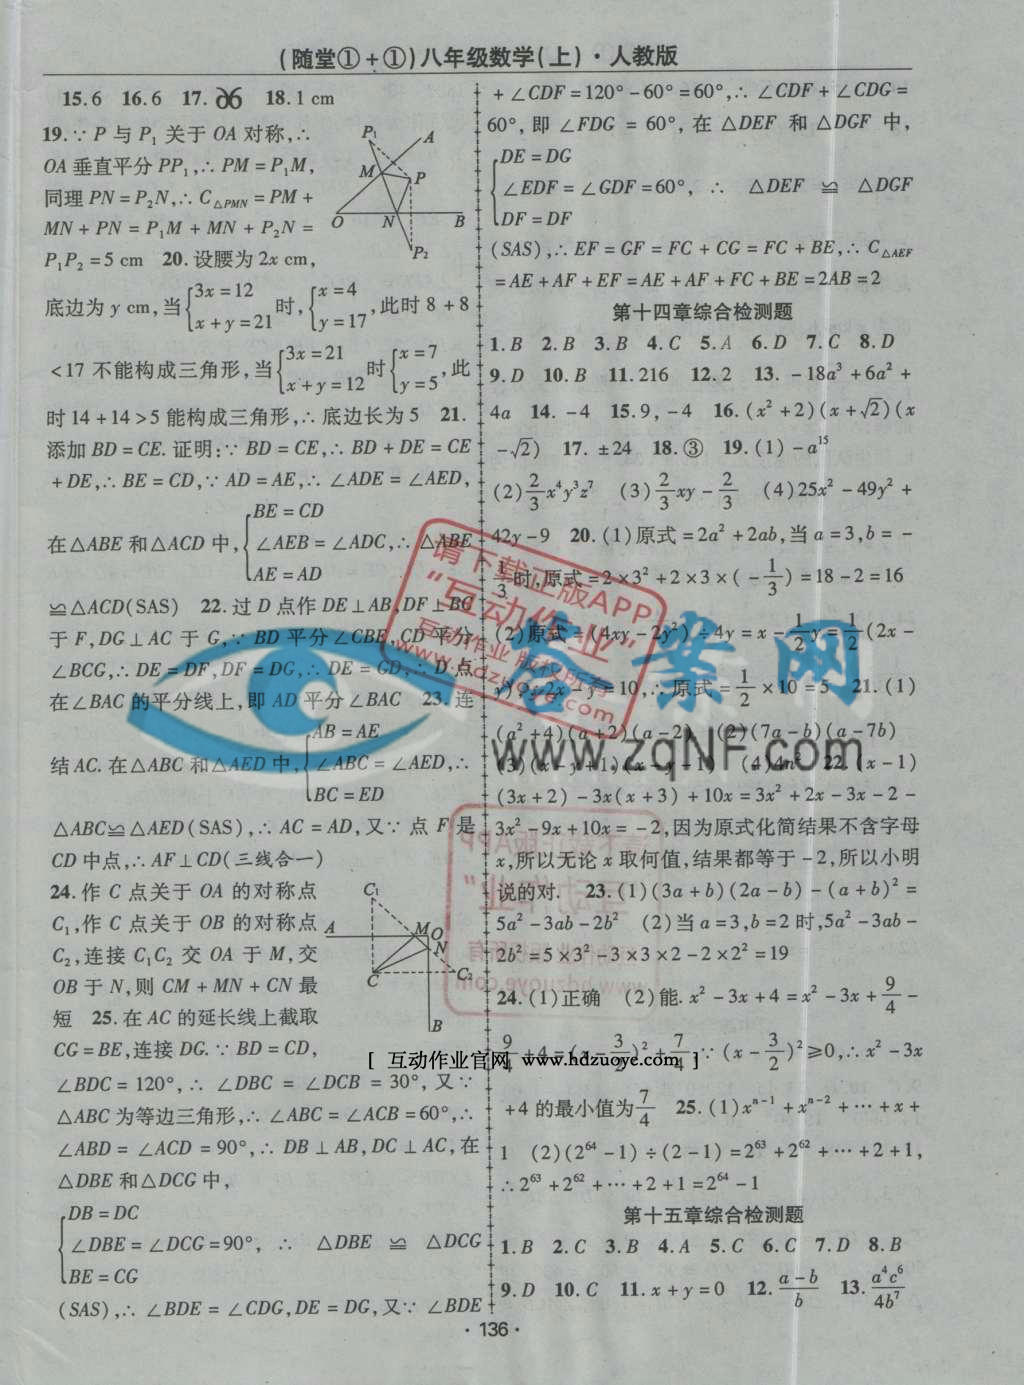 (随堂①+①)八年级数学(上)·人教版
15.6 16.6 17. 18.1 cm
19.∵P 与 P₁ 关于 OA 对称,∴
OA 垂直平分 PP₁,∴PM=P₁M,
同理 PN=P₂N,∴C△PMN=PM+
MN+PN=P₁M+MN+P₂N=
P₁P₂=5 cm 20.设腰为 2x cm,
底边为 y cm,当{3x=12 x+y=21 时,{x=4 y=17,此时 8+8
<17 不能构成三角形,当{3x=21 x+y=12 时{x=7 y=5,此
时 14+14>5 能构成三角形,∴底边长为 5 21.
添加 BD=CE.证明:∵BD=CE,∴BD+DE=CE
+DE,∴BE=CD,∵AD=AE,∴∠ADE=∠AED,
在△ABE 和△ACD 中,{BE=CD ∠AEB=∠ADC,∴△ABE AE=AD
≌△ACD(SAS) 22.过 D 点作 DE⊥AB,DF⊥BC
于 F,DG⊥AC 于 G,∵BD 平分∠CBE,CD 平分
∠BCG,∴DE=DF,DF=DG,∴DE=GD,∴D 点
在∠BAC 的平分线上,即 AD 平分∠BAC 23.连
结 AC.在△ABC 和△AED 中,{AB=AE ∠ABC=∠AED,∴ BC=ED
△ABC≌△AED(SAS),∴AC=AD,又∵点 F 是
CD 中点,∴AF⊥CD(三线合一)
24.作 C 点关于 OA 的对称点
C₁,作 C 点关于 OB 的对称点
C₂,连接 C₁C₂ 交 OA 于 M,交
OB 于 N,则 CM+MN+CN 最
短 25.在 AC 的延长线上截取
CG=BE,连接 DG.∵BD=CD,
∠BDC=120°,∴∠DBC=∠DCB=30°,又∵
△ABC 为等边三角形,∴∠ABC=∠ACB=60°,∴
∠ABD=∠ACD=90°,∴DB⊥AB,DC⊥AC,在
△DBE 和△DCG 中,
{DB=DC
∠DBE=∠DCG=90°,∴△DBE≌△DCG
BE=CG
(SAS),∴∠BDE=∠CDG,DE=DG,又∵∠BDE
P₁ A M P O N B P₂
C₁ A M O N C C₂ B
+∠CDF=120°-60°=60°,∴∠CDF+∠CDG=
60°,即∠FDG=60°,在△DEF 和△DGF 中,
{DE=DG
∠EDF=∠GDF=60°,∴△DEF≌△DGF
DF=DF
(SAS),∴EF=GF=FC+CG=FC+BE,∴C△AEF
=AE+AF+EF=AE+AF+FC+BE=2AB=2
第十四章综合检测题
1.B 2.B 3.B 4.C 5.A 6.D 7.C 8.D
9.D 10.B 11.216 12.2 13.-18a³+6a²+
4a 14.-4 15.9,-4 16.(x²+2)(x+√2)(x
-√2) 17.±24 18.③ 19.(1)-a¹⁵
(2)2/3x⁴y³z⁷ (3)2/3xy-2/3 (4)25x²-49y²+
42y-9 20.(1)原式=2a²+2ab,当 a=3,b=-
1/3时,原式=2×3²+2×3×(-1/3)=18-2=16
(2)原式=(4xy-2y²)÷4y=x-1/2y=1/2(2x-
y),∵2x-y=10,∴原式=1/2×10=5 21.(1)
(a²+4)(a+2)(a-2) (2)(7a-b)(a-7b)
(3)(x-y+1)(x-y-1) (4)4n² 22.(x-1)
(3x+2)-3x(x+3)+10x=3x²+2x-3x-2-
3x²-9x+10x=-2,因为原式化简结果不含字母
x,所以无论 x 取何值,结果都等于-2,所以小明
说的对. 23.(1)(3a+b)(2a-b)-(a+b)²=
5a²-3ab-2b² (2)当 a=3,b=2 时,5a²-3ab-
2b²=5×3²-3×3×2-2×2²=19
24.(1)正确 (2)能.x²-3x+4=x²-3x+9/4-
9/4+4=(x-3/2)²+7/4,∵(x-3/2)²≥0,∴x²-3x
+4 的最小值为7/4 25.(1)xⁿ⁻¹+xⁿ⁻²+…+x+
1 (2)(2⁶⁴-1)÷(2-1)=2⁶³+2⁶²+…+2+1,
∴2⁶³+2⁶²+…+2+1=2⁶⁴-1
第十五章综合检测题
1.B 2.C 3.B 4.A 5.C 6.C 7.D 8.B
9.D 10.C 11.x+y=0 12.(a-b)/b 13.a⁴c⁶/4b⁷
·136·
请下载正版APP
“互动作业”
互动作业 版权所有
www.hdzuoye.com
业网
www.zqNF.com
[ 互动作业官网 www.hdzuoye.com ]